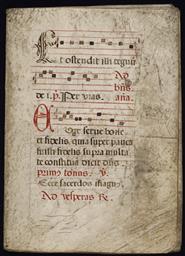 Et ostendit illi regnū
Ad
bn̄s.
de i. p. Per vias. an̄a.
Euge serve bone
et fidelis, quia super pauca
fuisti fidelis supra multa
te constituā dicit dn̄s.
primi tonus. v.
Ecce sacerdos magn⁹.
Ad vesperas